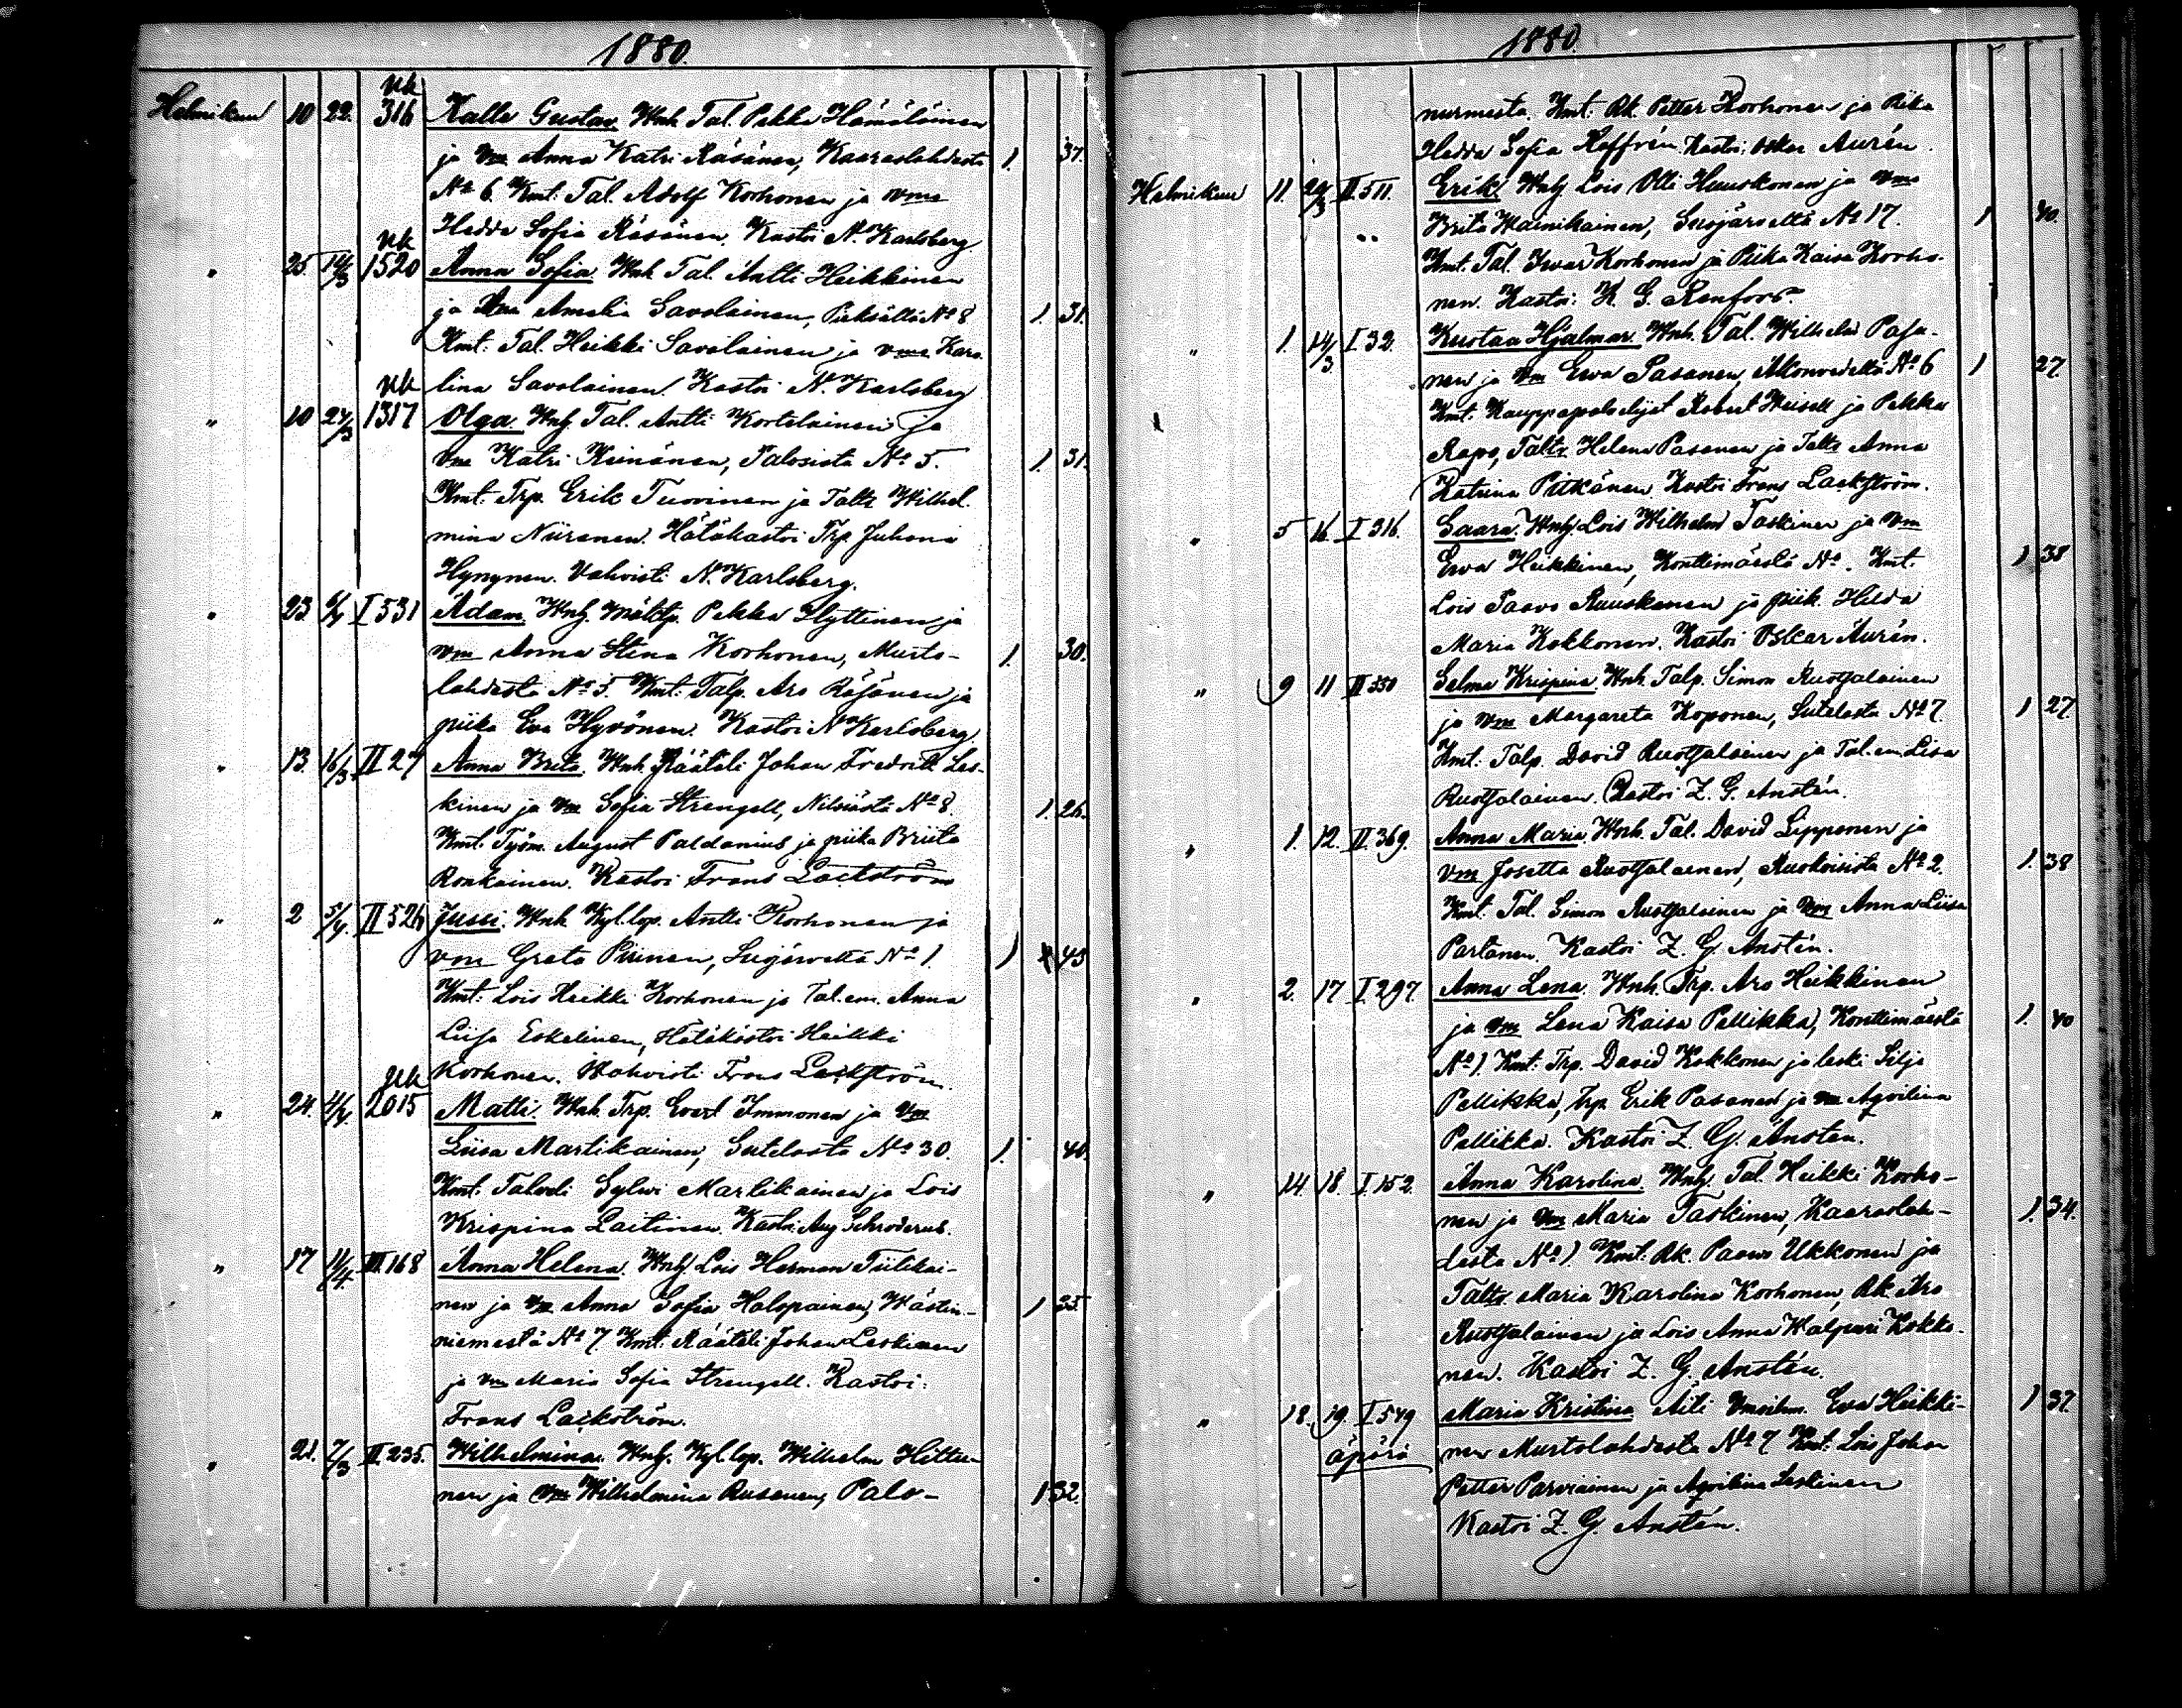 1880.
nk
Helmikuu 10 22. 316 Kalle Gustav. Wnh. Tal. Pekka Hämäläinen
ja Vm Anna Katri Räsänen, Kaaraslahdesta 1. 37.
No 6. Kmt: Tal. Adolf Korhonen ja Vmo
Hedda Sofia Räsänen. Kastoi N. Karlsberg.
nk
" 25. 14/3 1520 Anna Sofia. Wnh Tal. Antti Heikkinen
ja Vm Amalia Savolainen, No 8 1. 31.
Kmt: Tal. Heikki Savolainen ja Vmo Karo-
lina Savolainen. Kastoi N. Karlsberg
nk
" 10 24/3 1317 Olga. Wnh. Tal. Antti Kortelainen ja
Vm Katri Keinänen, Palosista No 5. 1. 31.
Kmt. Trp. Erik Tuovinen ja Taltr Wilhel-
mina Niiranen. Hätäkastoi Trp. Juhana
Hyngnen. Vahvisti N. Karlsberg.
" 23. I 531 Adam. Wnh. Mäktp. Pekka Hyttinen ja
Vm Anna Stina Korhonen, Musto- 1. 30.
lahdesta No 5. Kmt: Talp. Aro Räsänen ja
piika Eva Hyvönen. Kastoi N Karlsberg.
" 13. 16/3 II 27 Anna Brita. Wnh. Räätäli Johan Fredrik Les-
kinen ja Vm Sofia Strengell, Nilsiästä No 8. 1. 26.
Kmt. Työm. August Paldanius ja piika Briita
Ronkainen. Kastoi Frans Lackström
" 2 5/4. II 526 Jussi. Wnh Kyl.lop. Antti Korhonen ja
Vm Greta Piirinen, Sugärveltä No 1. 1 43
Kmt: Lois Heikki Korhonen ja Tal.em. Anna
Liisa Eskelinen, Hätäkastoi Heikki
Korhonen. Wahvisti Frans Lackström.
nk
" 24. 4/4. 2015 Matti. Wnh. Trp. Evert Immonen ja Vm
Liisa Martikainen, Sutelasta No 30. 1. 40.
Kmt. Sylvi Martikainen ja Lois
Krispina Laitinen. Kastoi Aug Schroderus.
" 17 11/4. III 168 Anna Helena. Wnh Lois Herman Tiilikai-
nen ja Vm Anna Sofia Halopainen, Wästin- 1 35
niemestä No 7. Kmt. Räätäli Johan Leskinen
ja Vm Maria Sofia Strengell. Kastoi:
Frans Lackström.
" 21. 7/3 II 235. Wilhelmina. Wnh. Kyl.lop. Wilhelm Hiltu-
nen ja Vm Wilhelmina Rusanen, Palo- 1 32.
1880.
nurmesta. Kmt: Rk. Petter Korhonen ja Piika
Hedda Sofia Roffrén. Kastoi: Oskar Aurén.
Helmikuu 11. 24/3 II 511. Erik. Wnh Lois Olli Huuskonen ja Vmo
Brita Wainikainen, Susjärveltä No 17. 1 40.
Kmt. Tal. Iwar Korhonen ja Piika Kaisa Korho-
nen. Kastoi: K. G. Renfors.
" 1. 14/3. I 32. Kustaa Hjalmar. Wnh. Tal. Wilhelm Pasa-
nen ja Vm Ewa Pasanen, Akonvedeltä No 6 1 27.
Kmt. Kauppapalvelijat Robert Weisell ja Pekka
Rapo, Taltr. Helena Pasanen ja Taltr Anna
Katrina Pitkänen. Kastoi Frans Lackström.
" 5 16. I 316. Saara. Wnh. Lois Wilhelm Taskinen ja Vm
Ewa Heikkinen, Konttimäestä No . Kmt. 1 38
Lois Paavo Ruuskanen ja piik. Hilda
Maria Kokkonen. Kastoi Oskar Aurén.
" 9 11 II 350 Selma Krispina. Wnh. Talp. Simon Ruotsalainen
ja Vm Margareta Koponen, Sutelasta No 7. 1 27.
Kmt: Talp. David Ruotsalainen ja Tal.em. Liisa
Ruotsalainen. Kastoi Z. G. Anstén.
" 1. 12. II 369. Anna Maria. Wnh. Tal. David Lipponen ja
Vm Josetta Ruotsalainen, No 2. 1. 38
Kmt. Tal. Simon Ruotsalainen ja Vm Anna Liisa
Partanen. Kastoi Z. G. Anstén.
" 2. 17 I 297. Anna Lena. Wnh. Trp. Aro Heikkinen
ja Vm Lena Kaisa Pellikka, Konttimäestä 1. 40
No 1. Kmt: Trp. David Kokkonen ja leski Silja
Pellikka, Trp. Erik Pasanen ja Vm Agvilina
Pellikka. Kastoi Z. G. Ansten.
" 14. 18. I 152. Anna Karolina. Wnh. Tal. Heikki Korho-
nen ja Vm Maria Taskinen, Kaaraslah- 1. 34.
desta No 1. Kmt: Rk. Paavo Ukkonen ja
Taltr. Maria Karolina Korhonen, Rk. Aro
Ruotsalainen ja Lois Anna Walpuri Kokko-
nen. Kastoi Z. G. Anstén.
" 18. 19. I 549 Maria Kristina Äiti Eva Heikki- 1 37.
äpärä nen Murtolahdesta No 7 Kmt: Lois Johan
Petter Parviainen ja Agvilina Leskinen
Kastoi Z. G. Anstén.